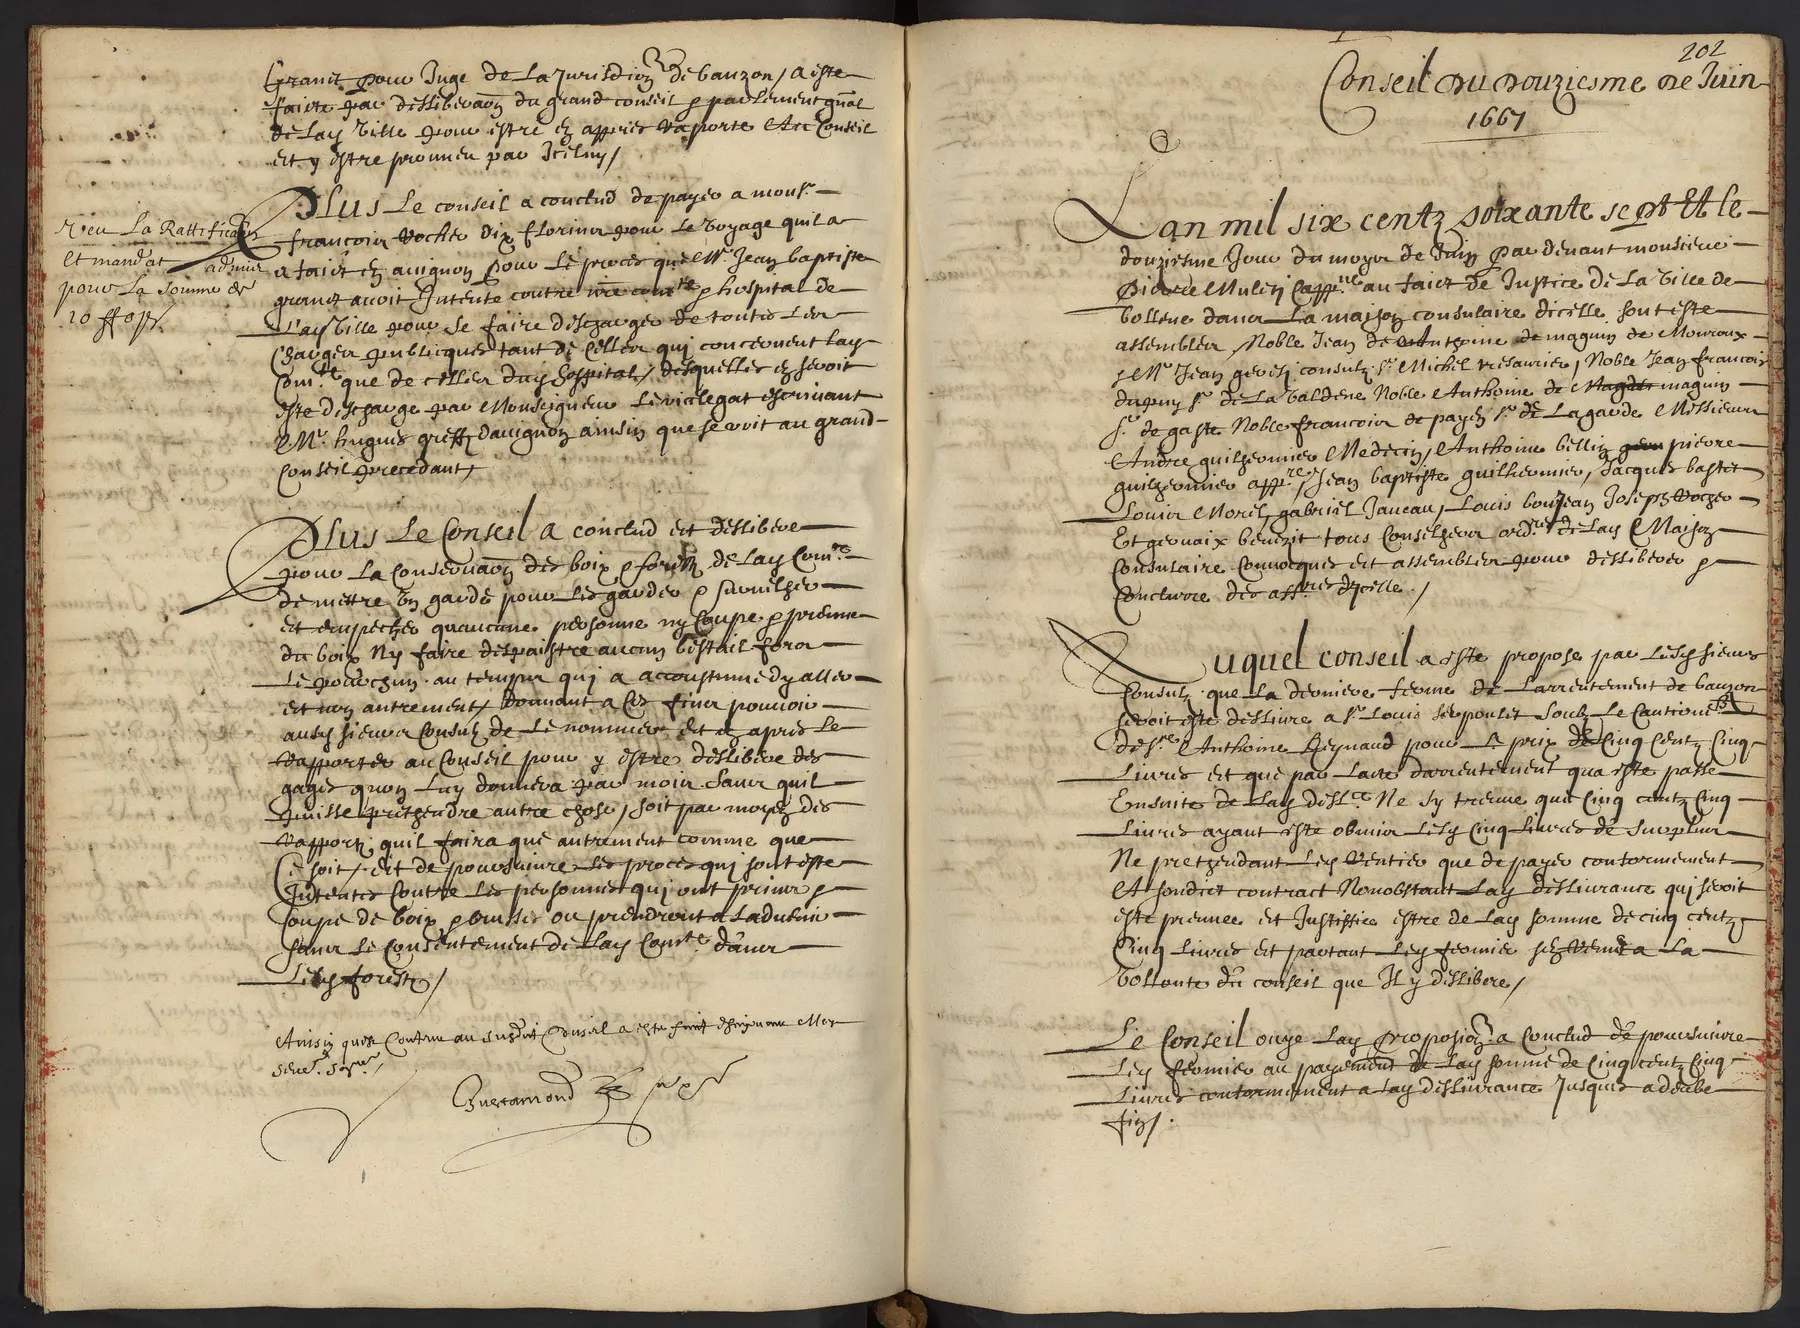 Granet pour Juge de La Jurisdion de bauzon, a este
faicte par deslibera͠on du grand conseil & parlement gnãl
de lad ville pour estre en appres raporte Au Conseil
et y estre prouueu par Iceluy /
PLus Le conseil a conclud de payer a monsr
francois Rocher dix florins pour le voyage quil a
a faict en auignon pour Le proces que Mr Jean baptiste
granet auoit Intente contre nre comte & hospital de
Lad ville pour se faire descharger de toutes Les
Charges publicques tant de celles qui concernent lad
Comte que de celles dud hospital / desquelles en seroit
este descharge par Monseigneur Levicelegat escriuant
Mr hugues greff dauignon ainsin que se voit au grand
Conseil precedant /
Veu La Rattification
Et mandat admis
pour La somme de
10 ff
PLus Le Conseil a conclud et deslibere
pour La Conserua͠on des boix & foretz de lad Comte
de mettre un garde pour Les garder & surueilher
et empecher quaucune personne ny Coupe & prenne
du boix Ny faire despaistre aucun bestail fors
Le pourchin au temps qui a accoustume dy aller
et non autrement / donnant a ces fins pouuoir
ausd sieurs Consulz de Le nommer et en apres le
Rapporter au Conseil pour y estre deslibere des
gages quon Luy donnera par mois sans quil
puisse prethendre autre chose / soit par moyen des
Rapportz quil faira que autrement comme que
Ce soit / et de poursuiure Les proces qui sont este
Intentes Contre Les personnes qui ont prins &
coupe de boix & brusses ou prendront a Laduenir
sans Le Consentement de Lad Comte dans
Lesd forestz /
Ainsin quest Contenu au susdit Conseil a este
Gueramond
202
Conseil du douziesme de Juin
1667
Lan mil six centz soixante sept Et le
douziesme Jour du moys de Juin par deuant monsieur
Pierre Mulety Cappne au faict de Justice de La ville de
bollene dans La maison consulaire dicelle sont este
assembles Noble Jean de Antoine de maguin de Monroux
& Mr Jean geuesi consulz sr Michel tresaurier, Noble Jean francois
dupuy sr de La baldene Noble Anthoine de Magdes maguin
sr de gaste Noble francois de payen sr de Lagarde Messieurs
Andre guilhermier Medecin, Anthoine bellin gem pierre
guilhermier appre, Jean baptiste guilhermier, Jacques bastet
Louis Morel, gabriel Janeau, Louis bourjean Joseph Rocher
Et geruaix benezit tous Conselhers ordres de Lad Maison
Consulaire Conuocques et assembles pour deslibeber &
Conclurre des affres dicelle /
Auquel conseil a este propose par Lesd sieurs
Consulz que La derniere ferme de Larrentement de bauzon
seroit este desliure a sr Louis Serpoulet Soubz Le Cautionet
de sre Anthoine Reynaud pour Le prix de Cinq Centz Cinq
Liures et que par Lacte darrentement qua este passe
Ensuite de Lad deslce Ne sy treuue que Cinq centz Cinq
Liures ayant este obmis Lesd Cinq Liures de surplus
Ne prethendant Led Rentier que de payer conformement
A sondict contract Nonobstant Lad desliurance qui seroit
este preuuee et Justiffiee estre de Lad somme de cinq centz
Cinq Liures et partant Led fermier sen Remet a La
vollonte du conseil que Il y deslibere /
Le Conseil ouye Lad proposion a Conclud de poursuiure
Led fermier au payement de Lad somme de Cinq cent Cinq
Liures conformement a Lad desliurance Jusques a deube
fin /.